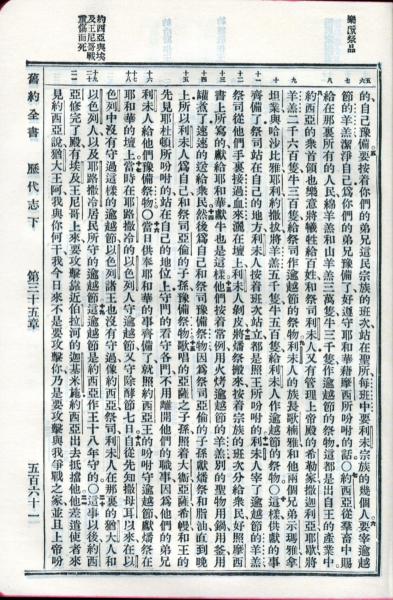 樂獻祭品
約西亞與埃
及王尼哥戰
重傷而死
五六 的自己豫備要按着你們的弟兄這民宗族的班次站在聖所每班中要利未宗族的幾個人要宰逾越
七 節的羊羔潔淨自己爲你們的弟兄豫備了好遵守耶和華藉摩西所吩咐的話○約西亞從羣畜中賜
八 給在那裏所有的人民綿羊羔和山羊羔三萬隻牛三千隻作逾越節的祭物這都是出自王的產業中
約西亞的衆首領也樂意將犧牲給百姓和祭司利未人又有管理上帝殿的希勒家撒迦利亞耶歇將
九 羊羔二千六百隻牛三百隻給祭司作逾越節的祭物利未人的族長歌楠雅和他兩個兄弟示瑪雅拿
十 坦業與哈沙比雅耶利約撒拔將羊羔五千隻牛五百隻給利未人作逾越節的祭物○這樣供獻的事
十一 齊備了祭司站在自己的地方利未人按着班次站立都是照王所吩咐的利未人宰了逾越節的羊羔
十二 祭司從他們手裏接過血來灑在壇上利未人剝皮將燔祭搬來按着班次分給衆民好照摩西
十三 書上所寫的獻給耶和華獻牛也是這樣他們按着常例用火烤逾越節的羊羔別的聖物用鍋用釜用
十四 罐煮了速速的送給衆民然後爲自己和祭司豫備祭物因爲祭司亞倫的子孫獻燔祭和脂油直到晚
十五 上所以利未人爲自己和祭司亞倫的子孫豫備祭物歌唱的亞薩之子孫照着大衛亞薩希幔和王的
先見耶杜頓所吩咐的站在自己的地位上守門的看守各門不用離開他們的職事因爲他們的弟兄
十六 利未人給他們豫備祭物○當日供奉耶和華的事齊備了就照約西亞王的吩咐守逾越節獻燔祭在
十七 耶和華的壇上當時在耶路撒冷的以色列人守逾越節又守除酵節七日自從先知撒母耳以來在以
十八 色列中沒有守過這樣的逾越節以色列諸王也沒有守過像約西亞祭司利未人在那裏的猶大人和
十九 以色列人以及耶路撒冷居民所守的逾越節這逾越節是約西亞作王十八年守的○這事以後約西
二十 亞修完了殿有埃及王尼哥上來要攻擊靠近伯拉河的迦基米施約西亞出去抵擋他他差遣使者來
二一 見約西亞說猶大王阿我與你何干我今日來不是要攻擊你乃是要攻擊與我爭戰之家並且上帝吩
舊約全書 歷代志下 第三十五章 五百六十一